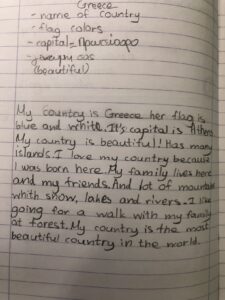 Greece
- name of country
- flag colors
- capital =
(beautiful)
My country is Greece her flag is
blue and white. It's capital is Athens
My country is beautiful! Has many
islands. I love my country because
I was born here. My family lives here
and my friends. And lot of mountains
whith snow, lakes and rivers. I like
going for a walk with my family
at forest. My country is the most
beautiful country in the world.